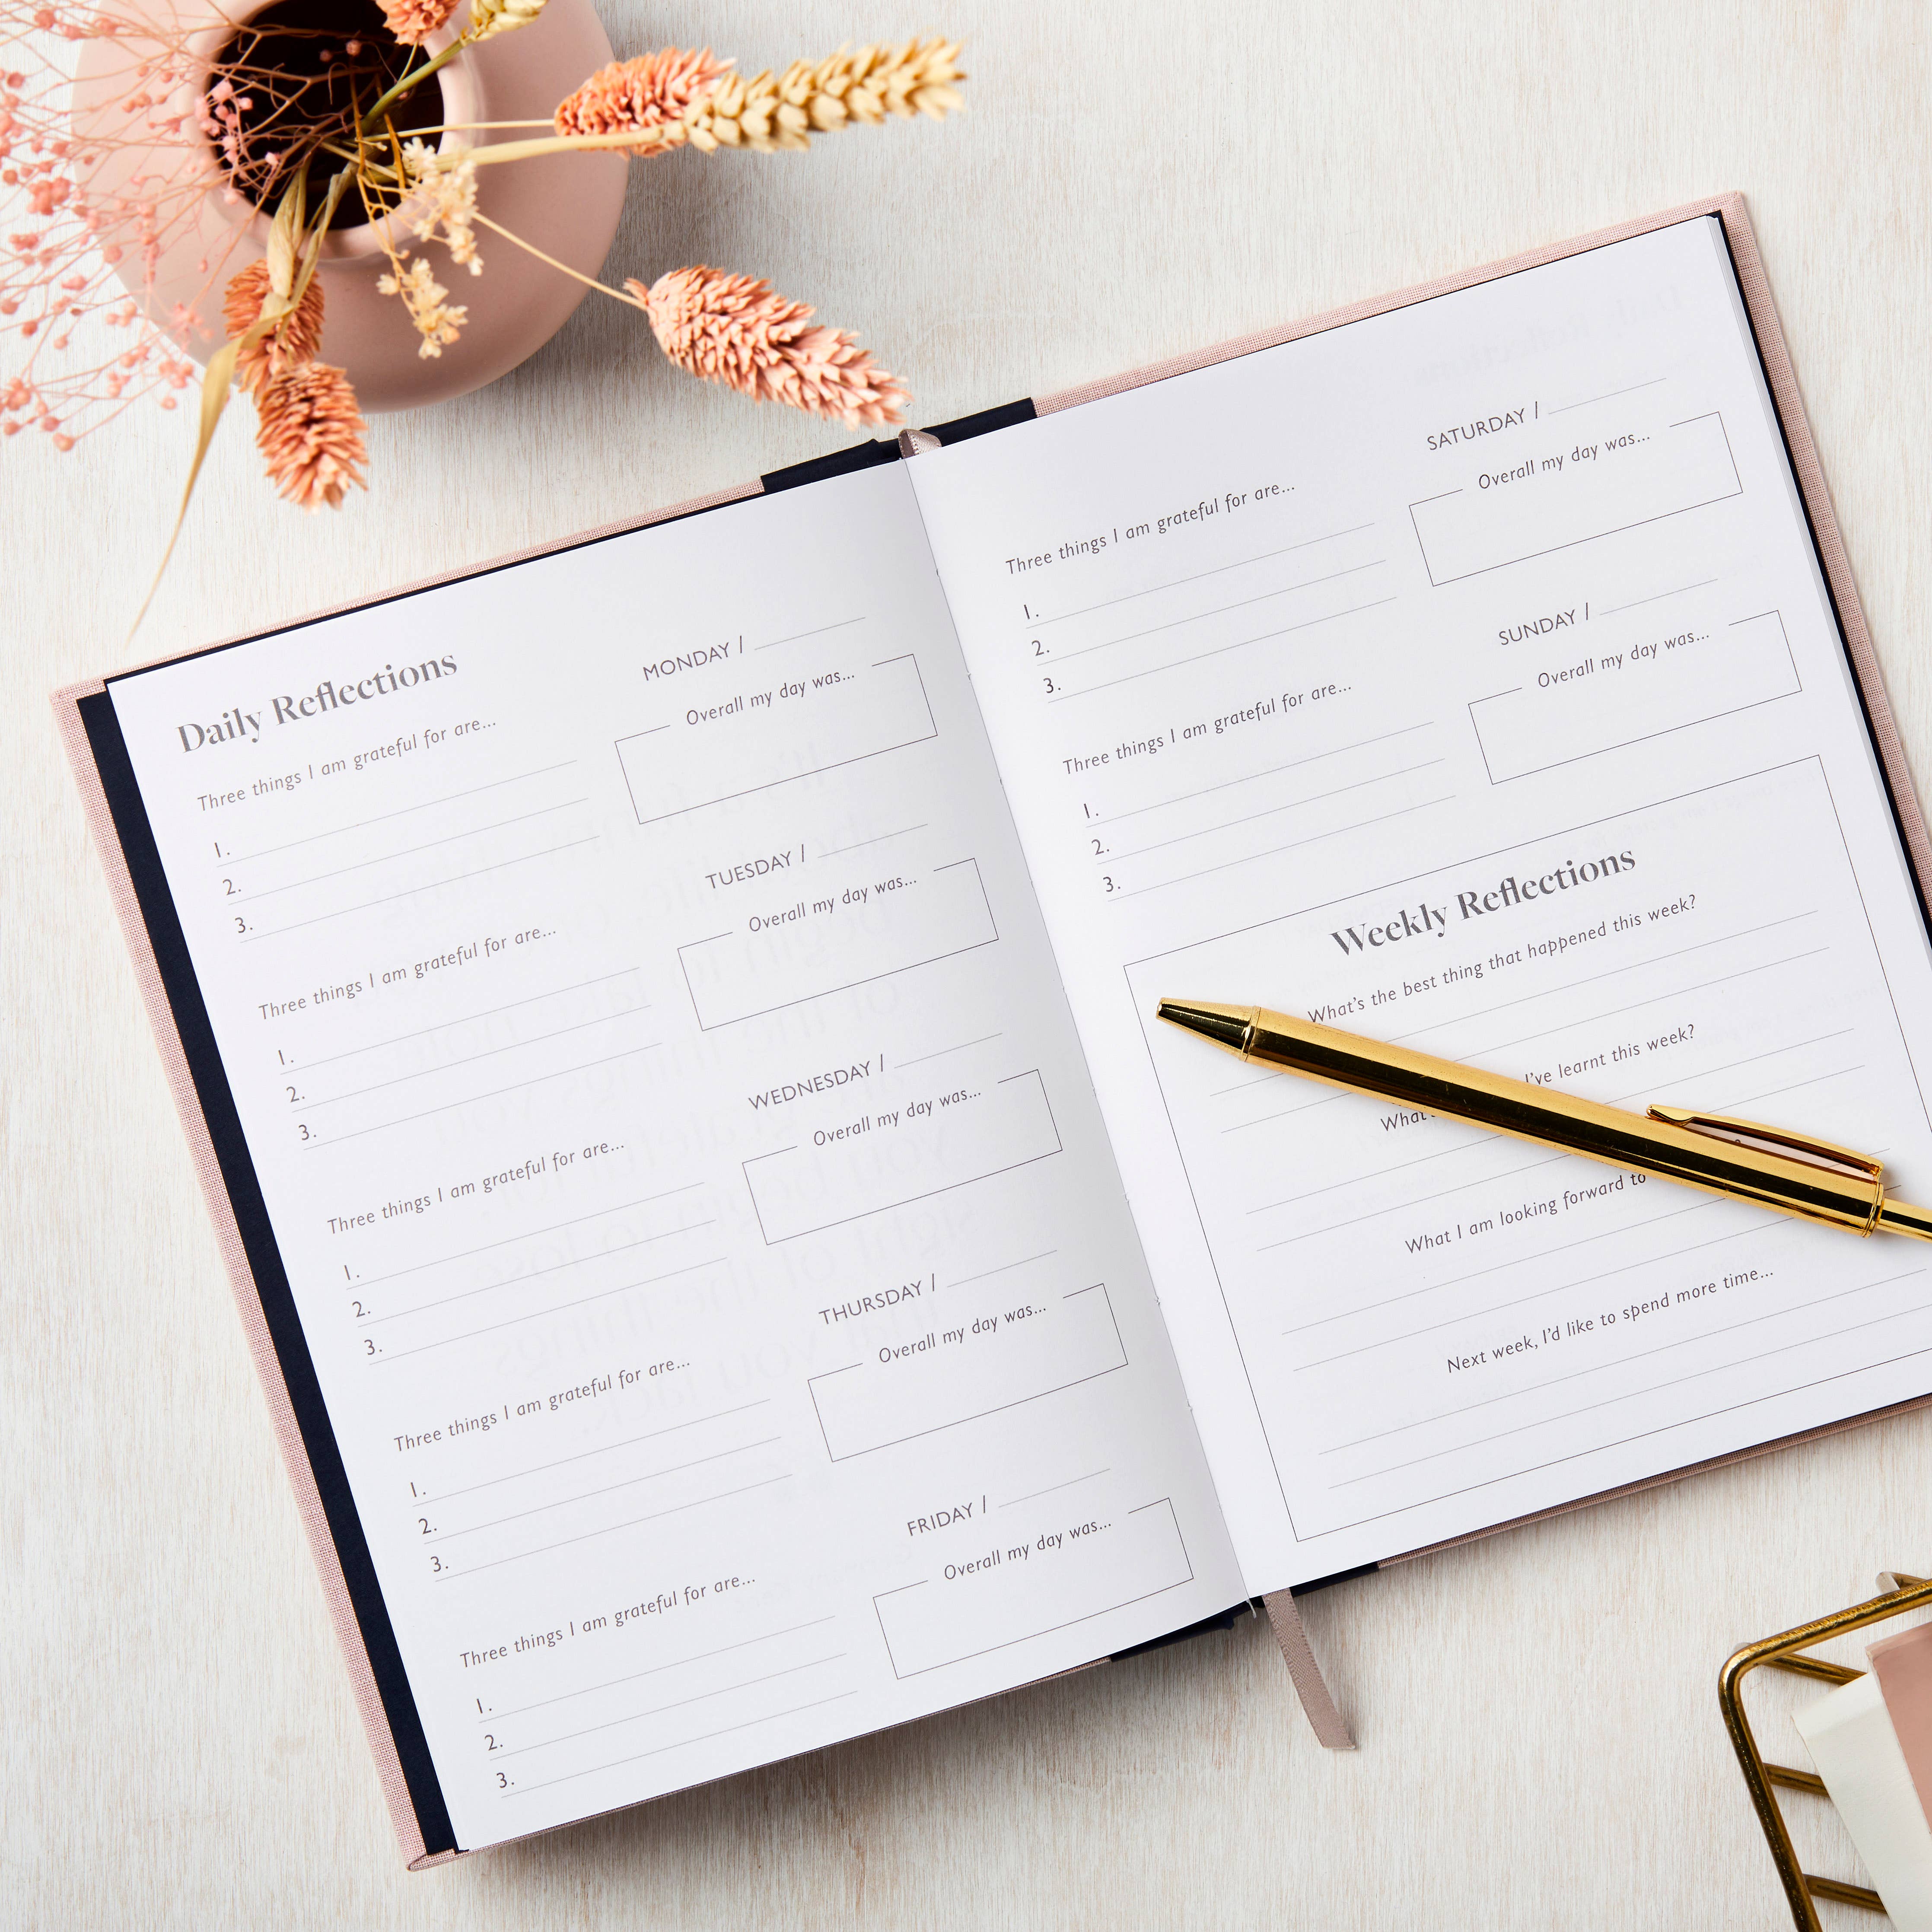 Daily Reflections
MONDAY /
Three things I am grateful for are...
Overall my day was...
1.
2.
3.
TUESDAY /
Three things I am grateful for are...
Overall my day was...
1.
2.
3.
WEDNESDAY /
Three things I am grateful for are...
Overall my day was...
1.
2.
3.
THURSDAY /
Three things I am grateful for are...
Overall my day was...
1.
2.
3.
FRIDAY /
Three things I am grateful for are...
Overall my day was...
1.
2.
3.
SATURDAY /
Three things I am grateful for are...
Overall my day was...
1.
2.
3.
SUNDAY /
Three things I am grateful for are...
Overall my day was...
1.
2.
3.
Weekly Reflections
What's the best thing that happened this week?
I've learnt this week?
What I am looking forward to
Next week, I'd like to spend more time...